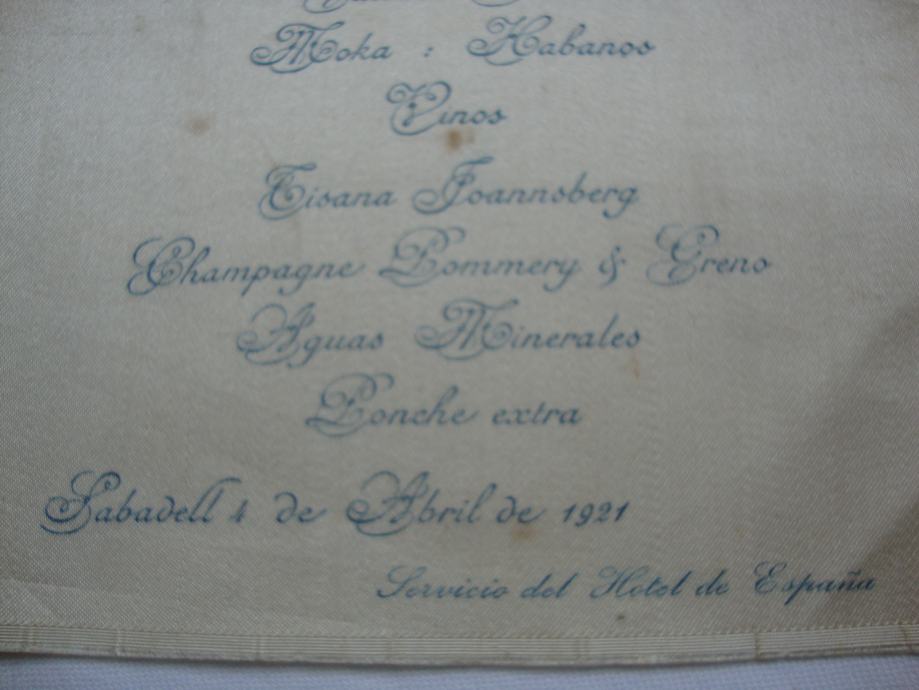 Moka : Habanos
Vinos
Tisana Joannsberg
Champagne Pommery & Greno
Aguas Minerales
Ponche extra
Sabadell 4 de Abril de 1921
Servicio del Hotel de España